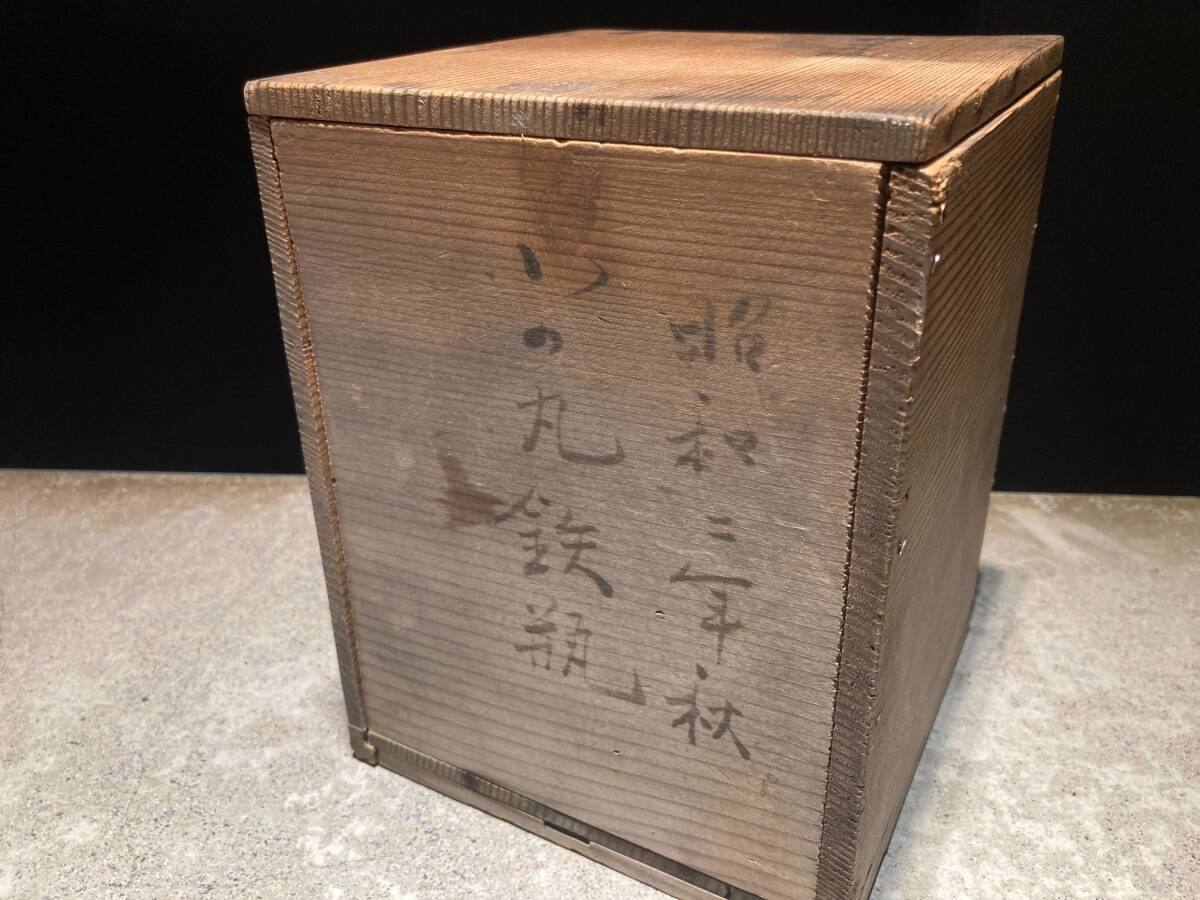 昭和二年秋
いの丸鉄瓶